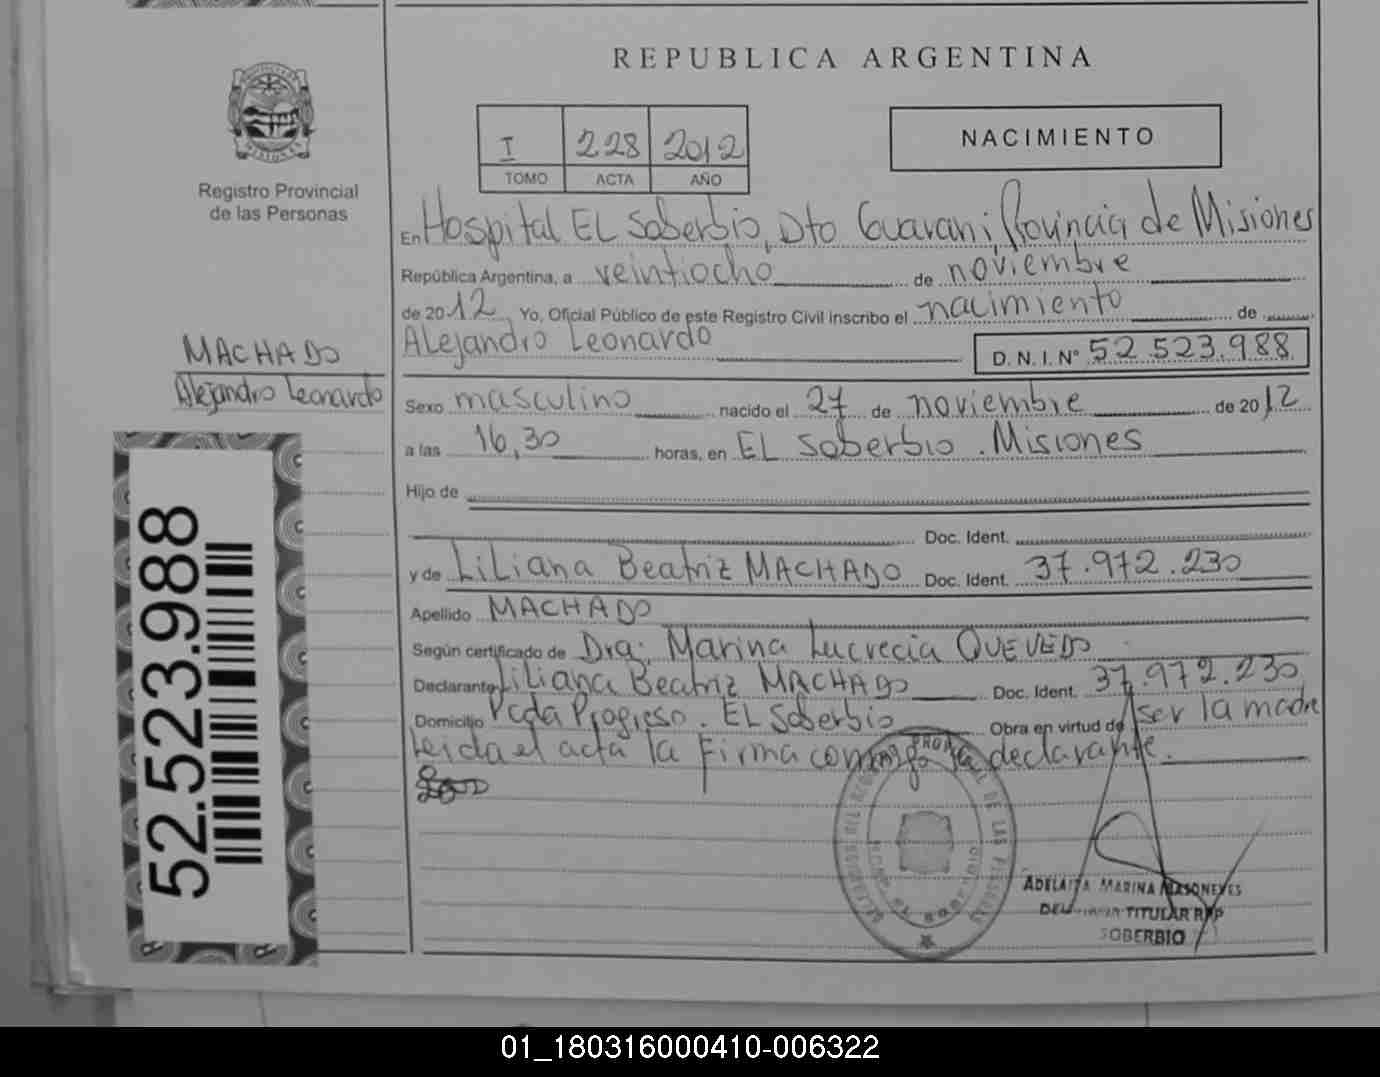 REPUBLICA ARGENTINA
MISIONES
Registro Provincial
de las Personas
I 228 2012
TOMO ACTA AÑO
NACIMIENTO
En Hospital EL Soberbio, Dto Guarani, Provincia de Misiones
República Argentina, a veintiocho de noviembre
de 2012 Yo, Oficial Público de este Registro Civil inscribo el nacimiento de
Alejandro Leonardo D. N. I. N° 52.523.988
MACHADO
Alejandro Leonardo
Sexo masculino nacido el 27 de noviembre de 2012
a las 16,30 horas, en EL Soberbio. Misiones
Hijo de
Doc. Ident.
y de Liliana Beatriz MACHADO Doc. Ident. 37.972.230
Apellido MACHADO
Según certificado de Dra. Marina Lucrecia QUEVEDO
Declarante Liliana Beatriz MACHADO Doc. Ident. 37.972.230
Domicilio Pcda Progreso. EL Soberbio Obra en virtud de ser la madre
Leida el acta la firma conmigo la declarante.
52.523.988
DE LAS
EL SOBERBIO
ADELAIDA MARINA MASONEVES
TITULAR RPP
SOBERBIO
01_180316000410-006322